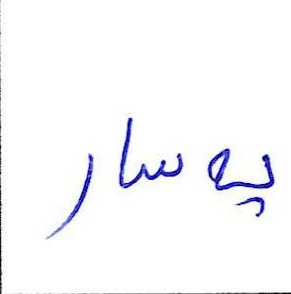 پەسار